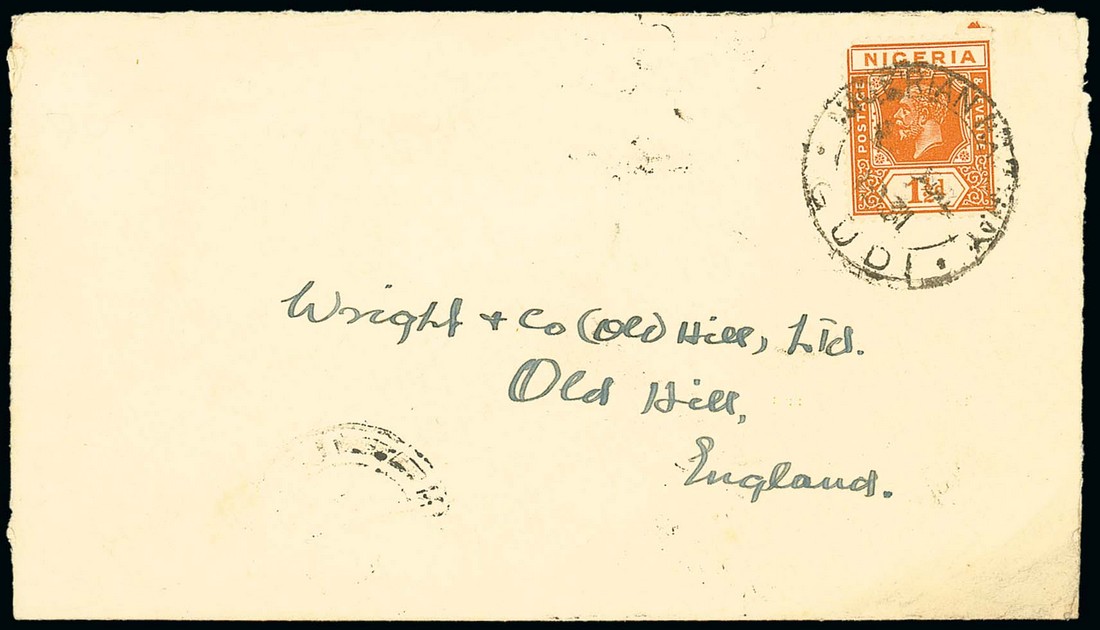 NIGERIA
POSTAGE & REVENUE
1½d
NIGERIAN RAILWAY
UDI
Wright & Co (Old Hill, Ltd.
Old Hill,
England.